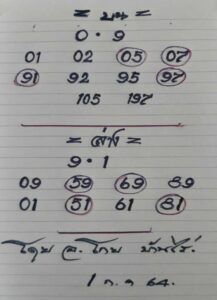 = บน =
0 • 9
01 02 05 07
91 92 95 97
105 197
= ล่าง =
9 • 1
09 59 69 89
01 51 61 81
โดย จ. โกบ บ้านไร่.
1 ก.ค 64.